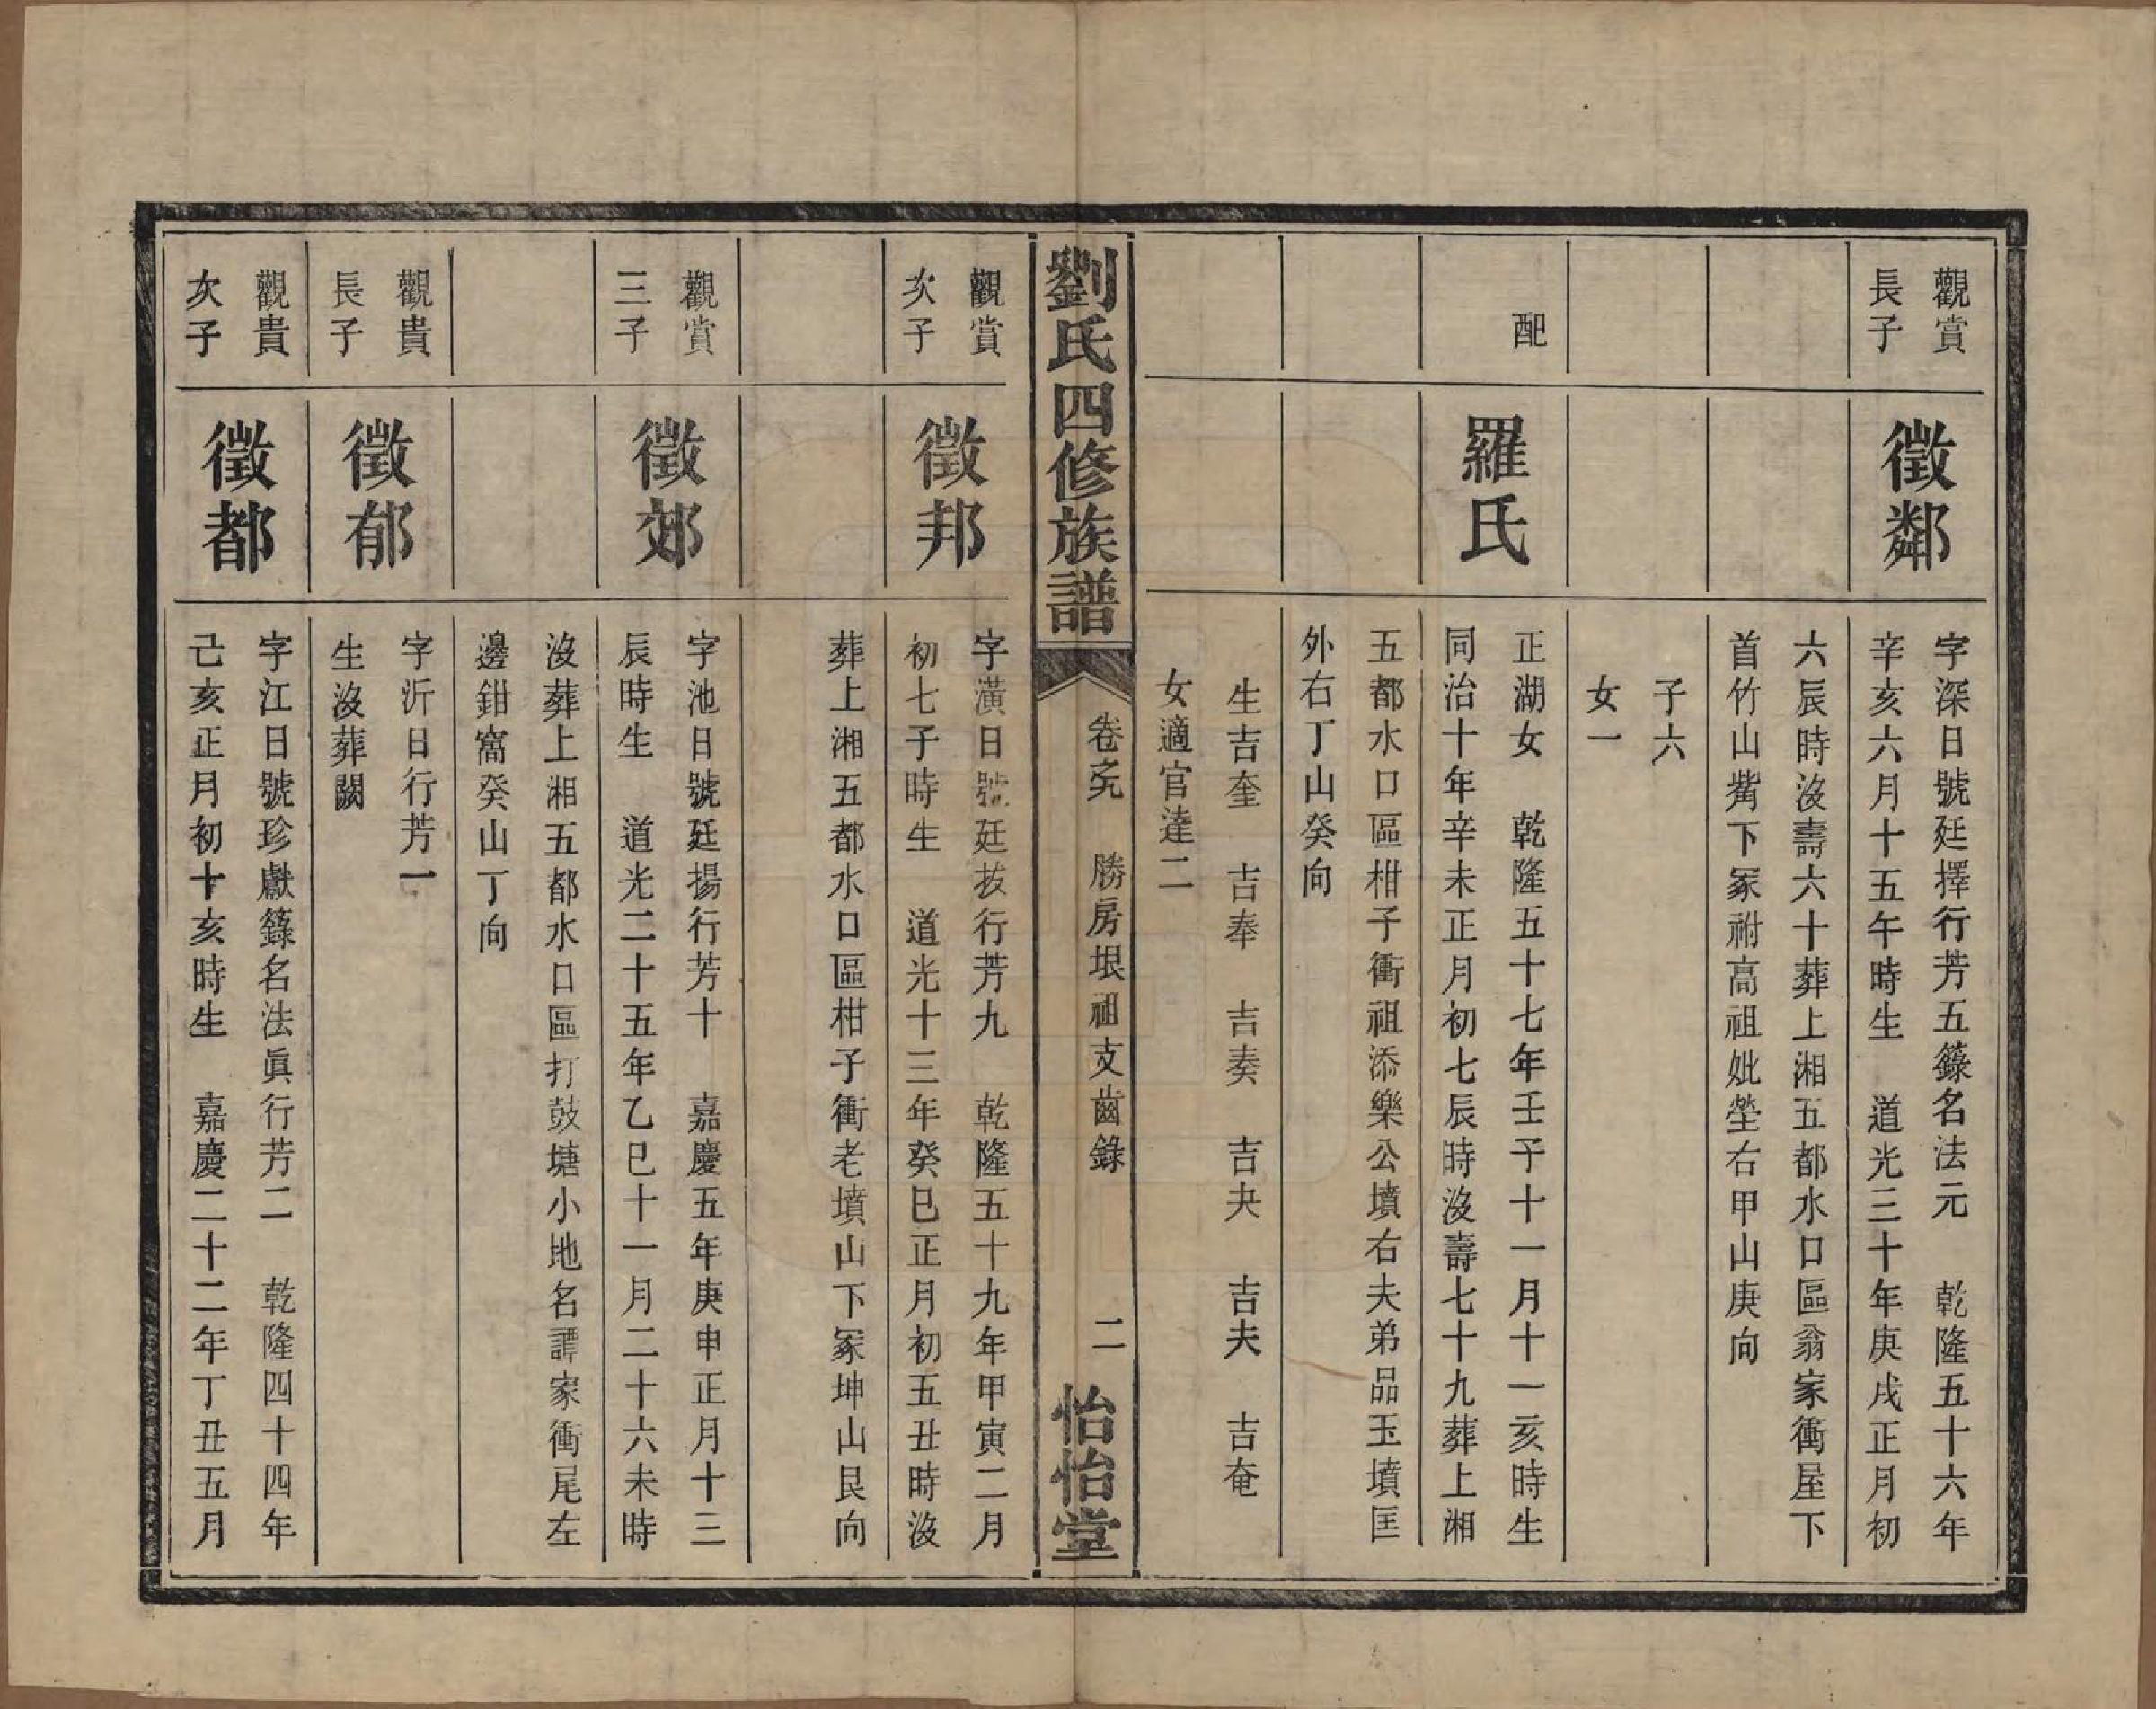 觀賞
長子
徵鄰
字深日號廷擇行芳五籙名法元　乾隆五十六年
辛亥六月十五午時生　道光三十年庚戌正月初
六辰時沒壽六十葬上湘五都水口區翁家衝屋下
首竹山觜下冢祔高祖妣塋右甲山庚向
子六
女一
配
羅氏
正湖女　乾隆五十七年壬子十一月十一亥時生
同治十年辛未正月初七辰時沒壽七十九葬上湘
五都水口區柑子衝祖添樂公墳右夫弟品玉墳匡
外右丁山癸向
生吉奎　吉奉　吉奏　吉夬　吉夫　吉奄
女適官達二
劉氏四修族譜
卷之九　勝房垠祖支齒錄　二
怡怡堂
觀賞
次子
徵邦
字潢日號廷拔行芳九　乾隆五十九年甲寅二月
初七子時生　道光十三年癸巳正月初五丑時沒
葬上湘五都水口區柑子衝老墳山下冢坤山艮向
觀賞
三子
徵郊
字池日號廷揚行芳十　嘉慶五年庚申正月十三
辰時生　道光二十五年乙巳十一月二十六未時
沒葬上湘五都水口區打鼓塘小地名譚家衝尾左
邊鉗窩癸山丁向
觀貴
長子
徵郁
字沂日行芳一
生沒葬闕
觀貴
次子
徵都
字江日號珍獻籙名法眞行芳二　乾隆四十四年
己亥正月初十亥時生　嘉慶二十二年丁丑五月